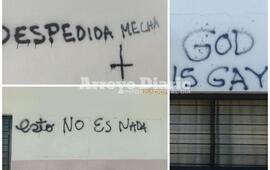 DESPEDIDA MECHA
GOD
IS GAY
Arroyo Diario
esto NO ES NADA